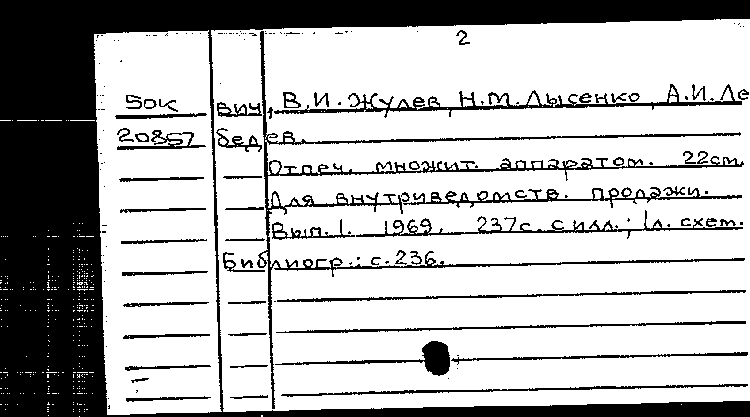 2
50к вич, В.И. Жулев, Н.М. Лысенко, А.И. Ле
20857 бедев.
Отпеч. множит. аппаратом. 22см.
Для внутриведомств. продажи.
Вып. 1. 1969. 237с. с илл.; 1л. схем.
Библиогр.: с.236.